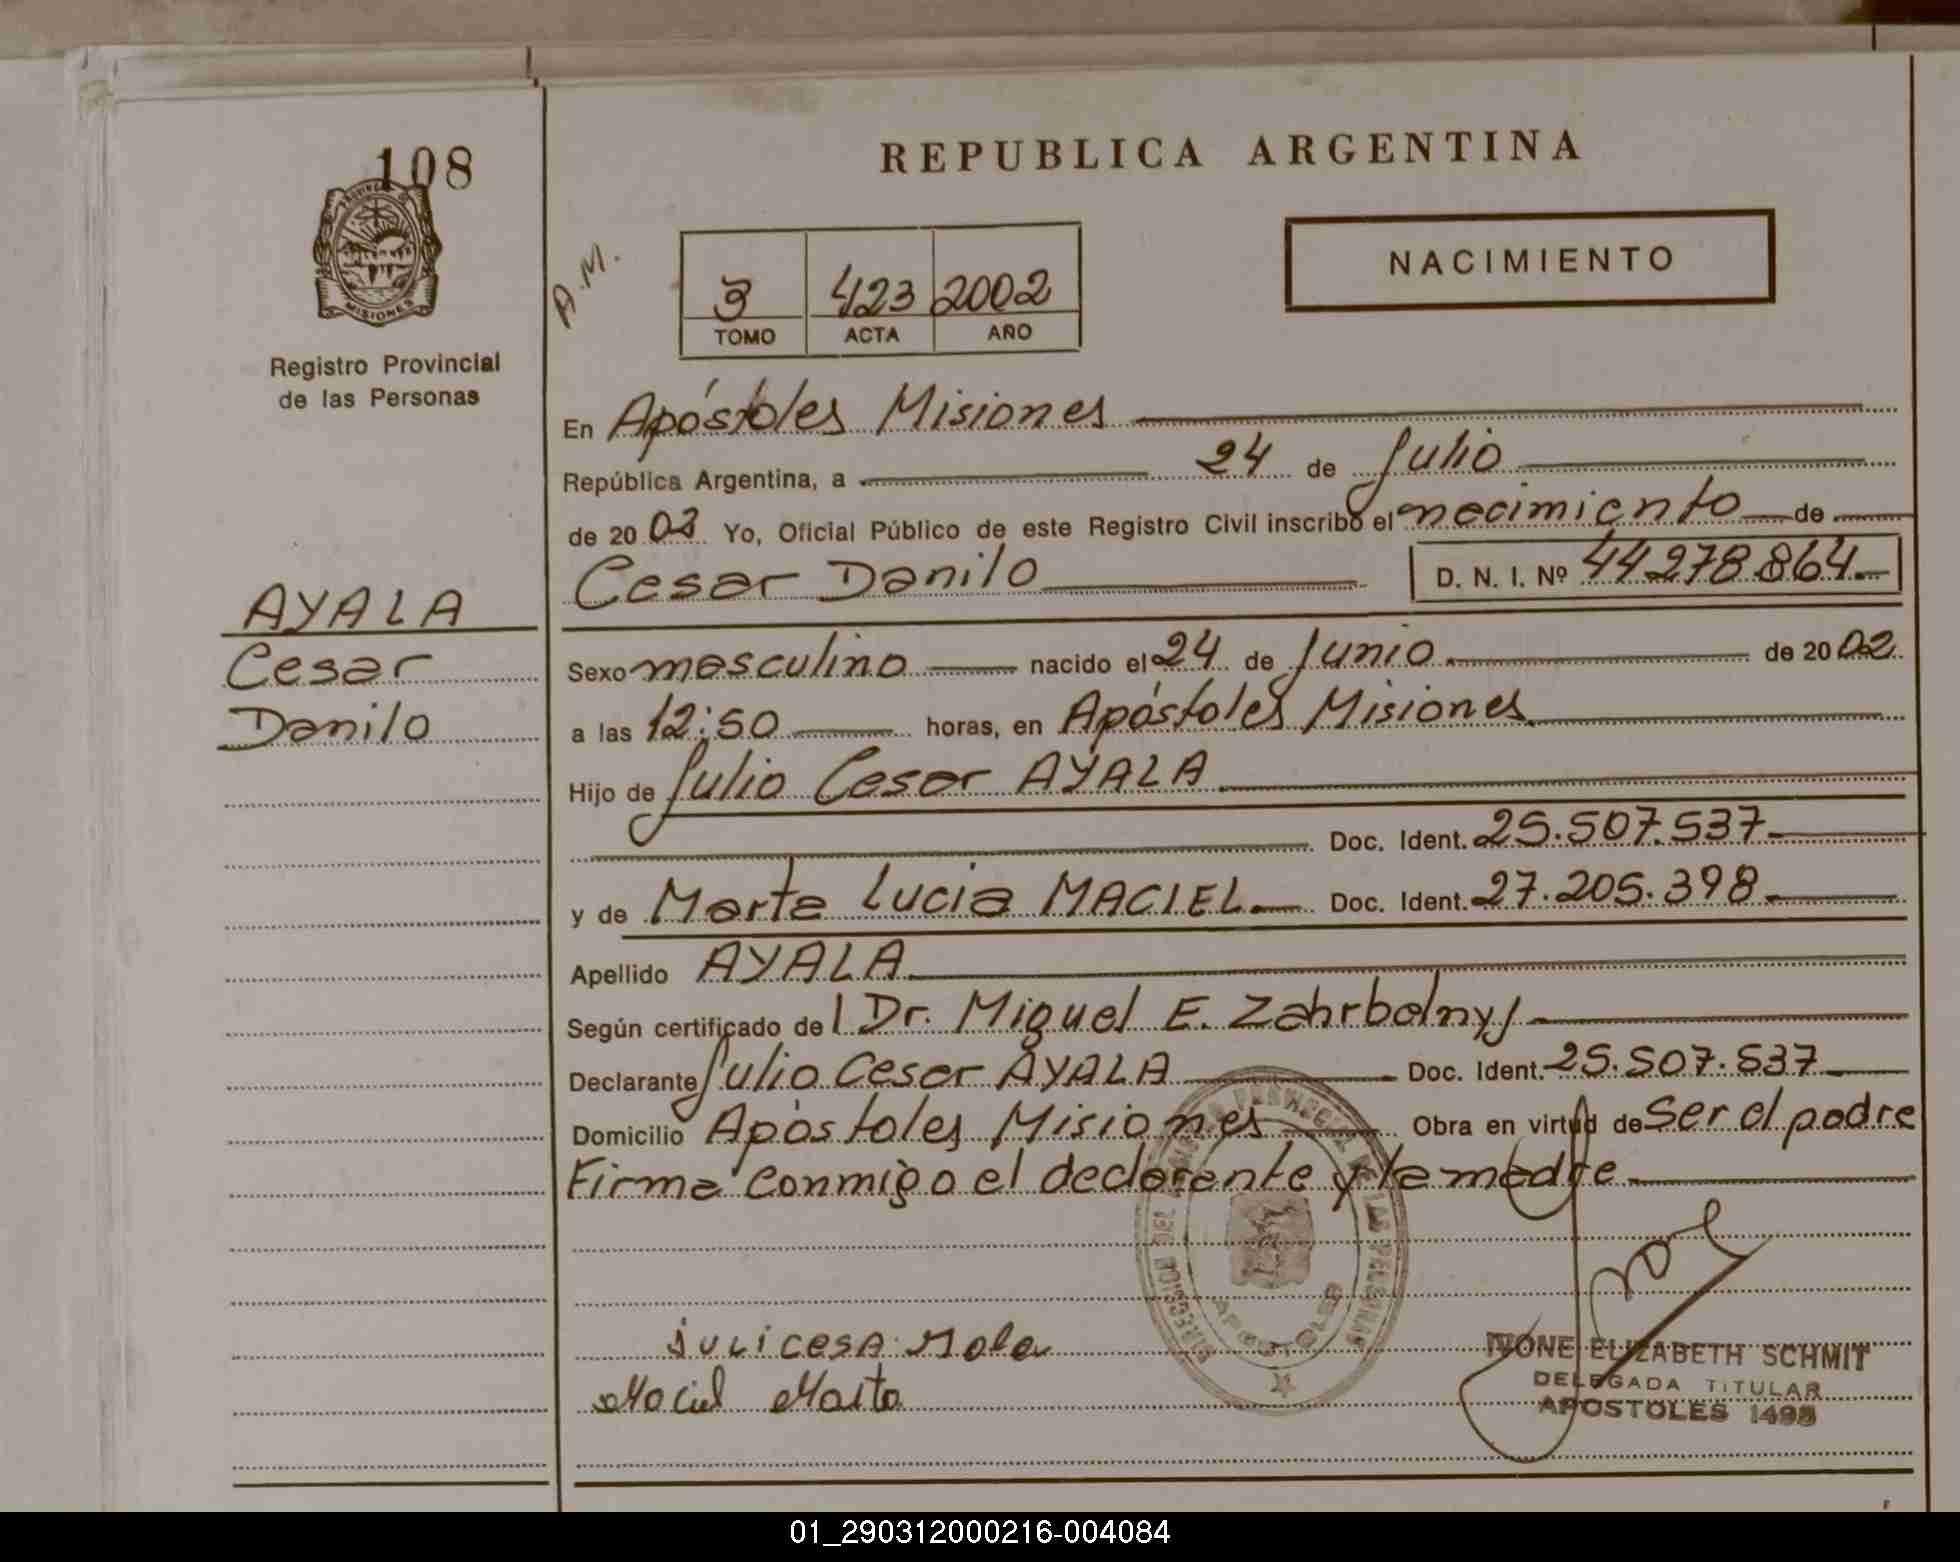 108
REPUBLICA ARGENTINA
NACIMIENTO
A.M.
3 423 2002
TOMO ACTA AÑO
MISIONES
Registro Provincial
de las Personas
En Apóstoles Misiones
República Argentina, a 24 de Julio
de 2002 Yo, Oficial Público de este Registro Civil inscribo el nacimiento de
Cesar Danilo D. N. I. Nº 44278.864.
AYALA
Cesar
Danilo
Sexo masculino nacido el 24 de Junio de 2002
a las 12:50 horas, en Apóstoles Misiones
Hijo de Julio Cesar AYALA
Doc. Ident. 25.507.537
y de Marta Lucia MACIEL Doc. Ident. 27.205.398
Apellido AYALA
Según certificado de Dr. Miguel E. Zahrbolny
Declarante Julio Cesar AYALA Doc. Ident. 25.507.537
Domicilio Apóstoles Misiones Obra en virtud de Ser el padre
Firma conmigo el declarante y la madre
DIRECCION DEL REGISTRO PROVINCIAL DE LAS PERSONAS
APOSTOLES
Maciel Marta
IVONE ELIZABETH SCHMIT
DELEGADA TITULAR
APOSTOLES 1495
01_290312000216-004084